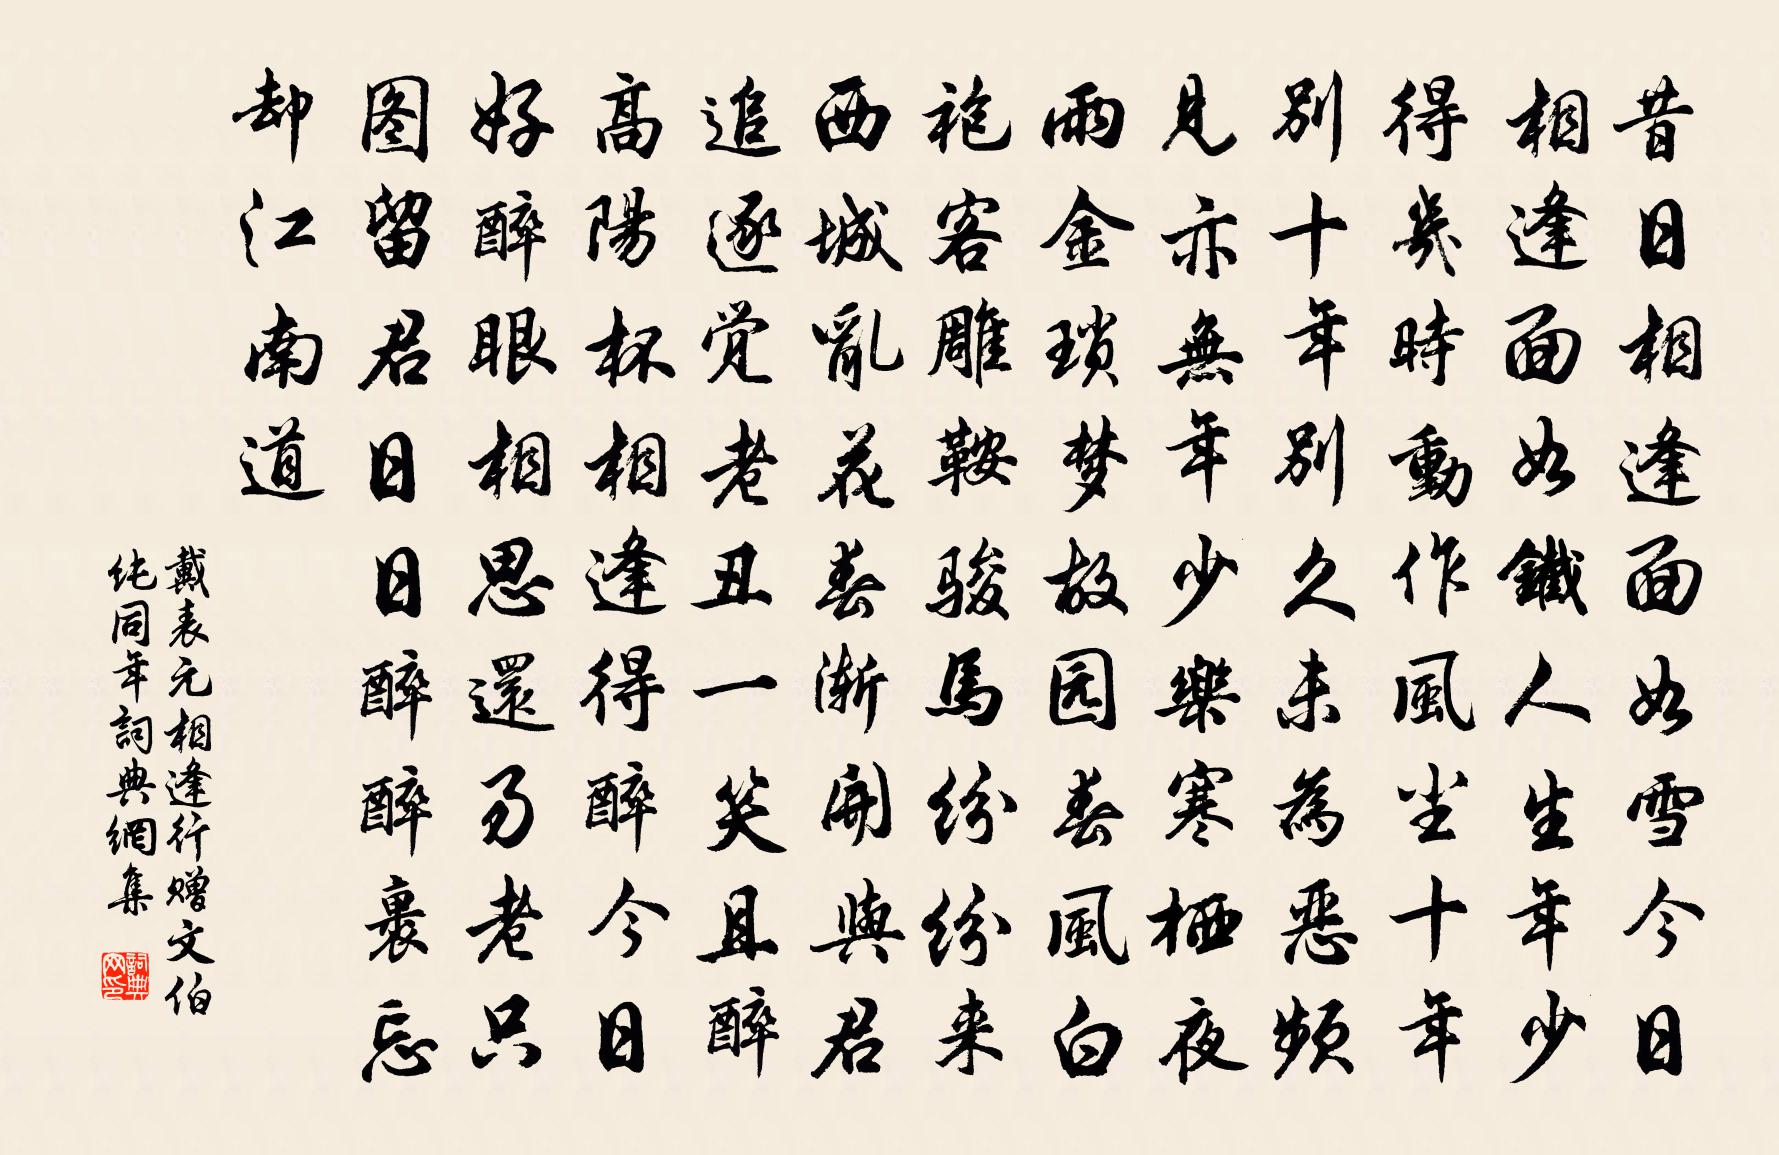 昔日相逢面如雪今日
相逢面如鐵人生年少
得幾時動作風尘十年
別十年別久未為恶頻
見亦無年少樂寒栖夜
雨金琐梦故园春風白
袍客雕鞍骏馬纷纷来
西城亂花春渐開與君
追逐觉老丑一笑且醉
高陽杯相逢得醉今日
好醉眼相思還易老只
图留君日日醉醉裹忘
却江南道
戴表元相逢行赠文伯
纯同年詞典網集
詞典网印